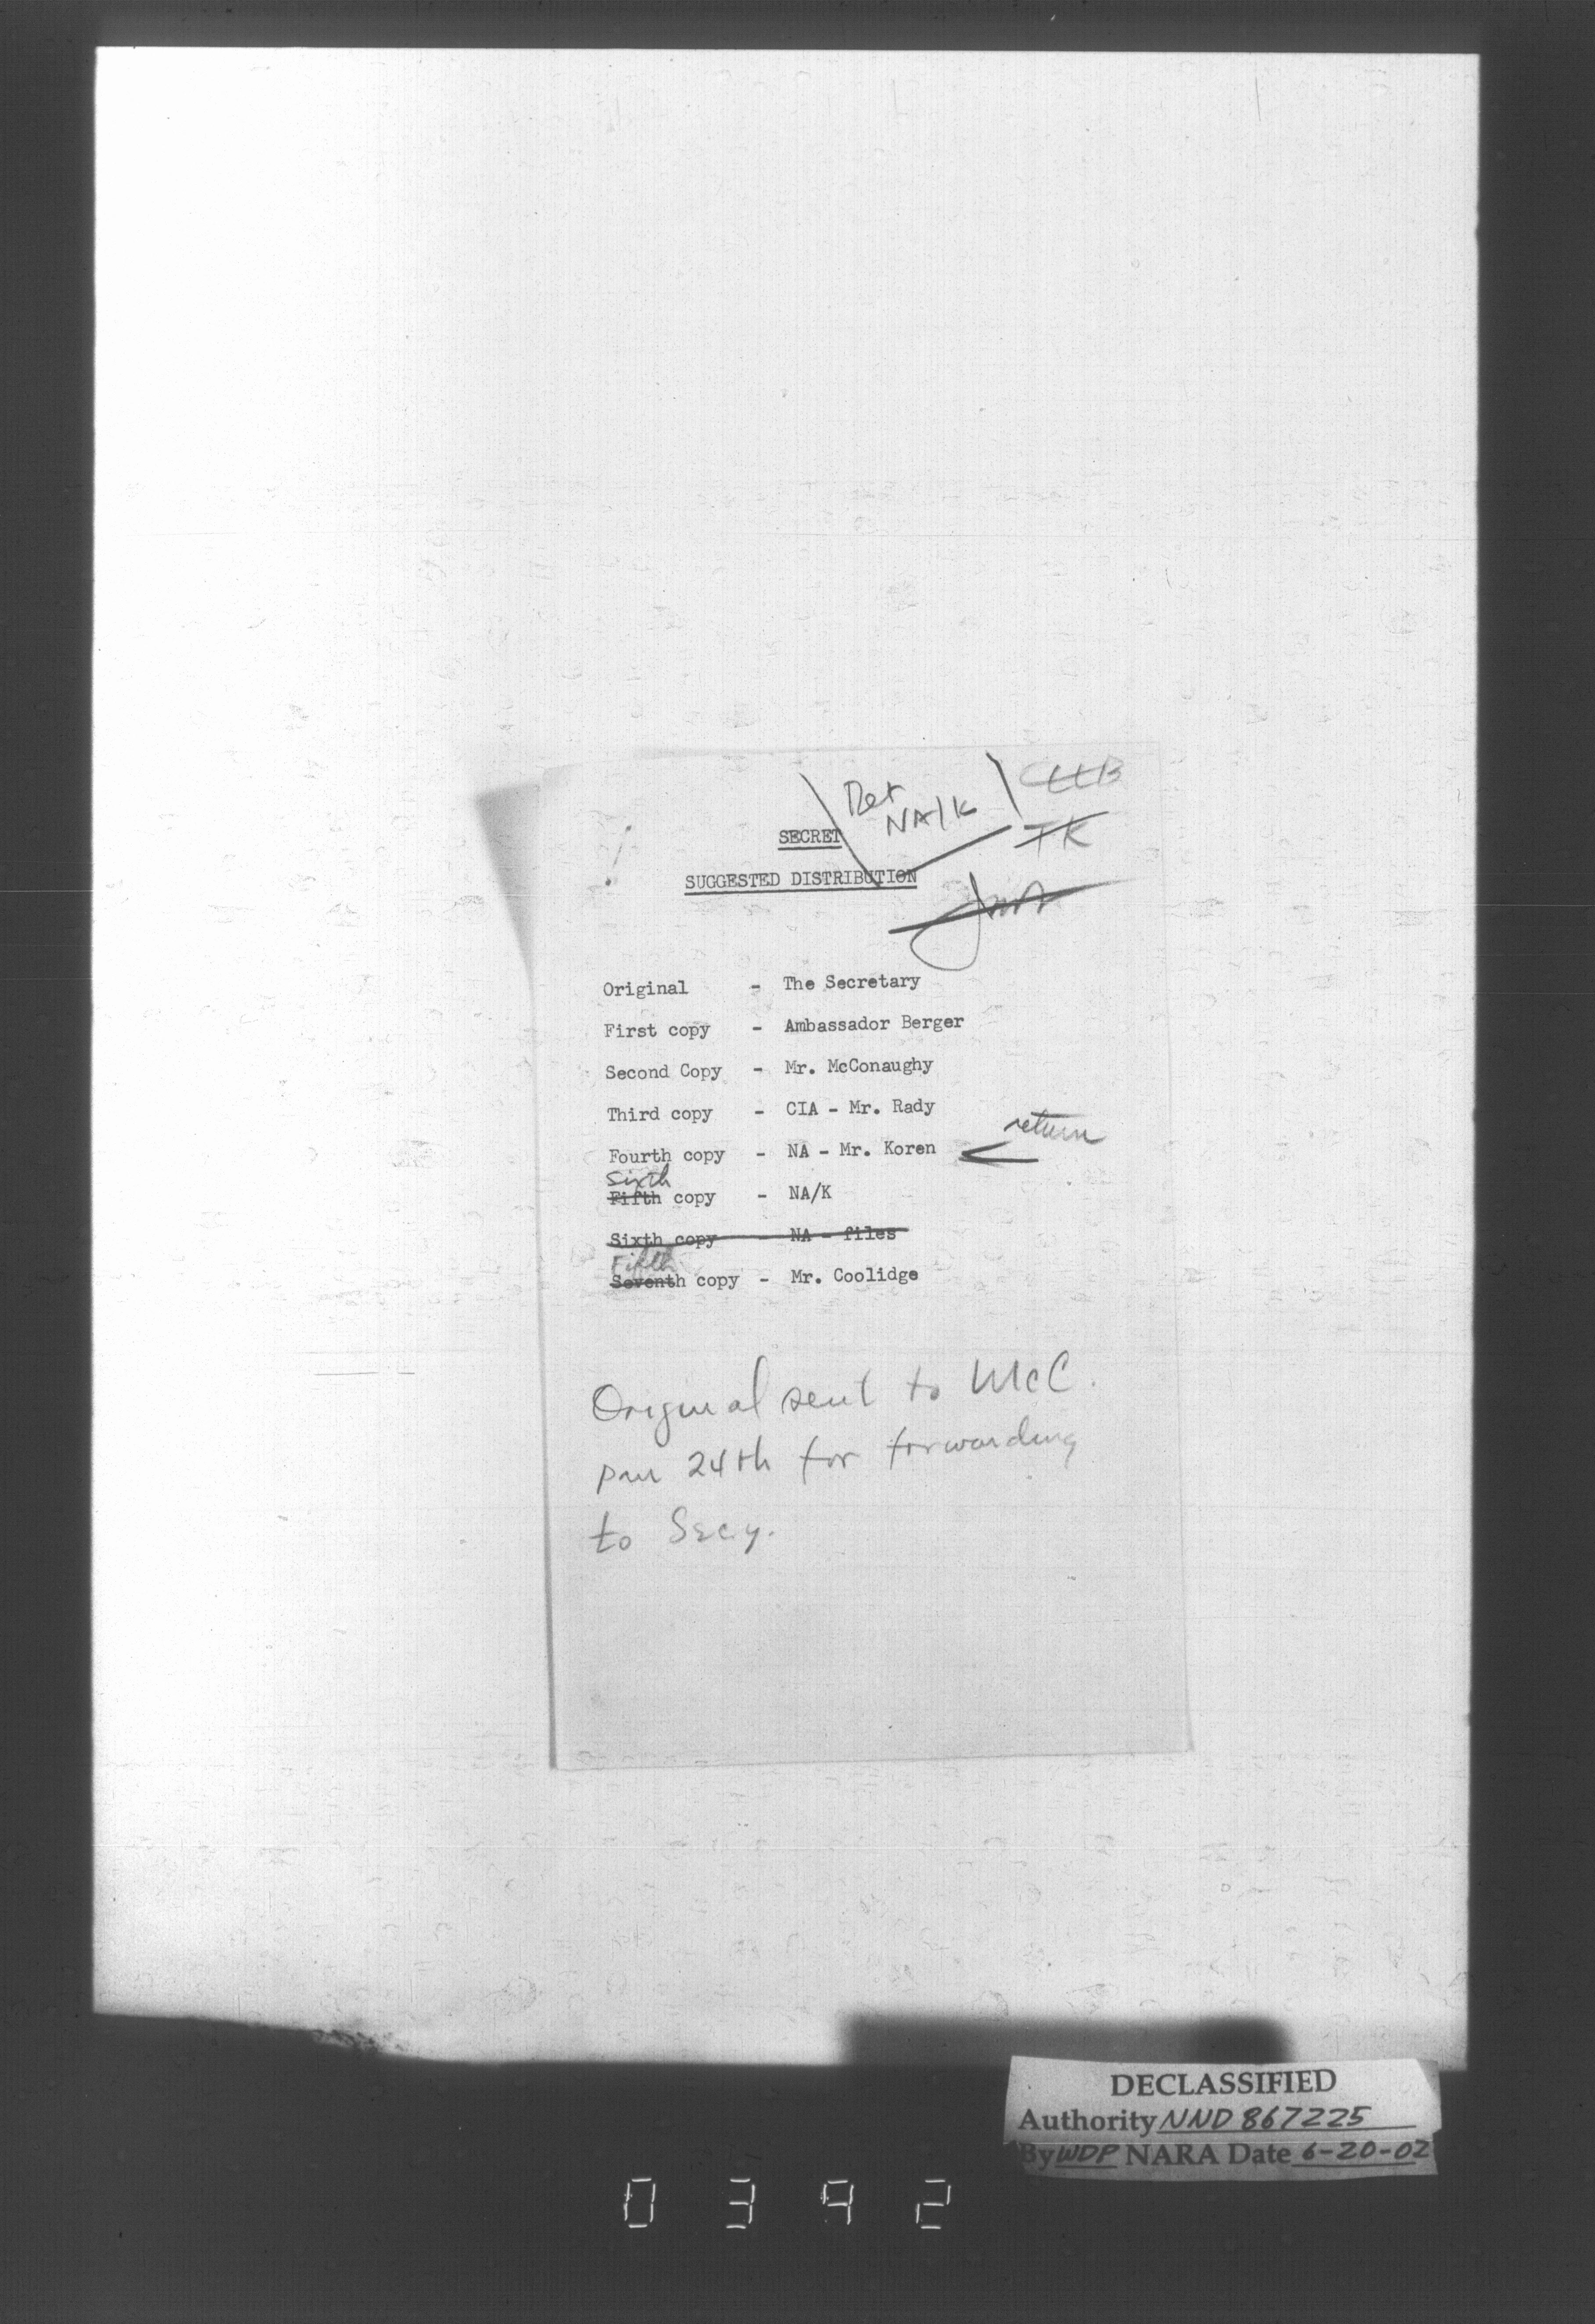 Ret
NA/K
CHB
JK
SECRET
SUGGESTED DISTRIBUTION
Original - The Secretary
First copy - Ambassador Berger
Second Copy - Mr. McConaughy
Third copy - CIA - Mr. Rady
return
Fourth copy - NA - Mr. Koren
Sixth
Fifth copy - NA/K
Sixth copy - NA - files
Fifth
Seventh copy - Mr. Coolidge
Original sent to McC.
pm 24th for forwarding
to Secy.
DECLASSIFIED
Authority NND 867225
By WDP NARA Date 6-20-02
0392